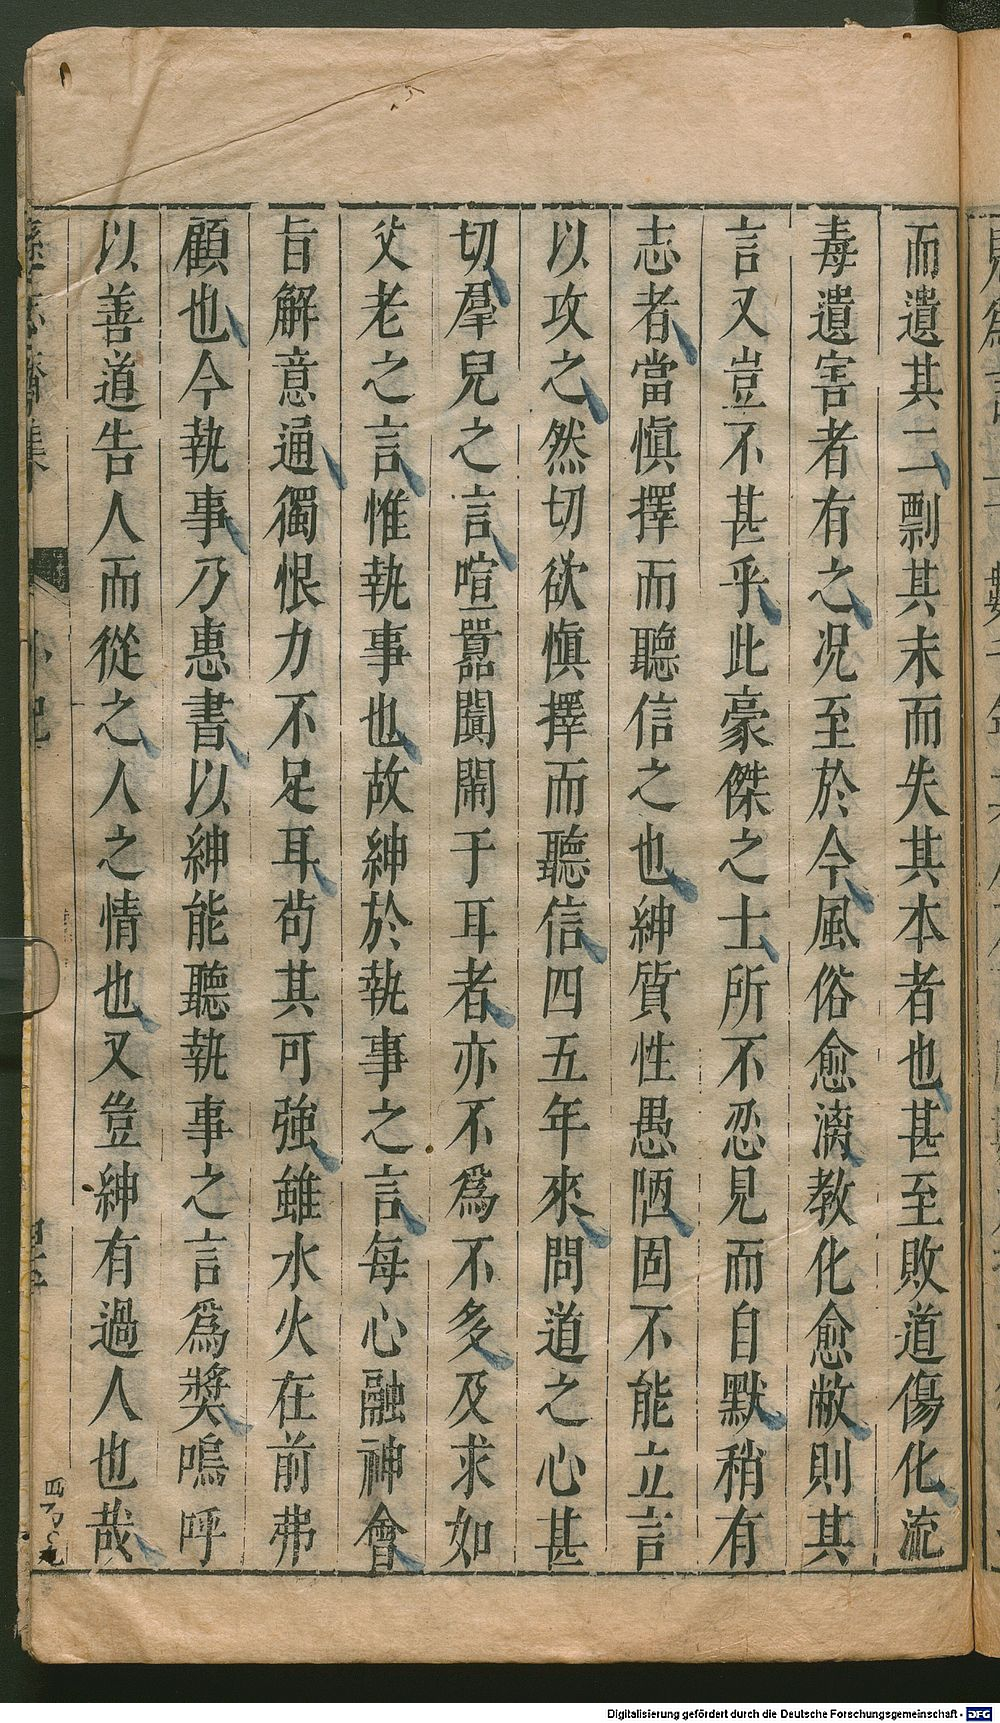 而遺其二剽其末而失其本者也甚至敗道傷化流
毒遺害者有之况至於今風俗愈漓教化愈敝則其
言又豈不甚乎此豪傑之士所不忍見而自默稍有
志者當慎擇而聽信之也紳質性愚陋固不能立言
以攻之然切欲慎擇而聽信四五年來問道之心甚
切羣兒之言喧囂闐鬧于耳者亦不爲不多及求如
父老之言惟執事也故紳於執事之言每心融神會
旨解意通獨恨力不足耳苟其可強雖水火在前弗
顧也今執事乃惠書以紳能聽執事之言爲奬嗚呼
以善道告人而從之人之情也又豈紳有過人也哉
Digitalisierung gefördert durch die Deutsche Forschungsgemeinschaft - DFG